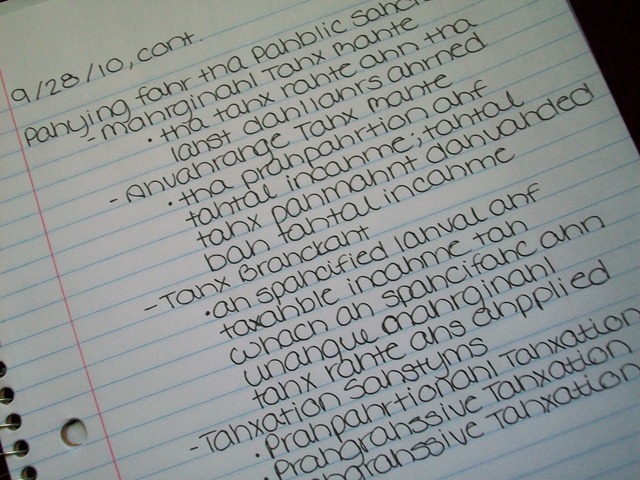 9/28/10, cont.
Pahying fahr tha pahblic sahc
- mahrginahl Tahx mahte
• tha tahx rahte ahn tha
lahst dahllahrs ahrned
- Ahvahrange Tahx mahte
• tha prahpahrtion ahf
tahtal incahme; tahtal
tahx pahmahnt dahvahded
bah tahtal incahme
- Tahx Branckaht
• ah spahcified lahval ahf
taxahble incahme tah
whach ah spahcifahc ahn
unahque mahrginahl
tahx rahte ahs ahpplied
- Tahxation Sahstyms
• Prahpahrtionahl Tahxation
• Prahgrahssive Tahxation
ahgrahssive Tahxation